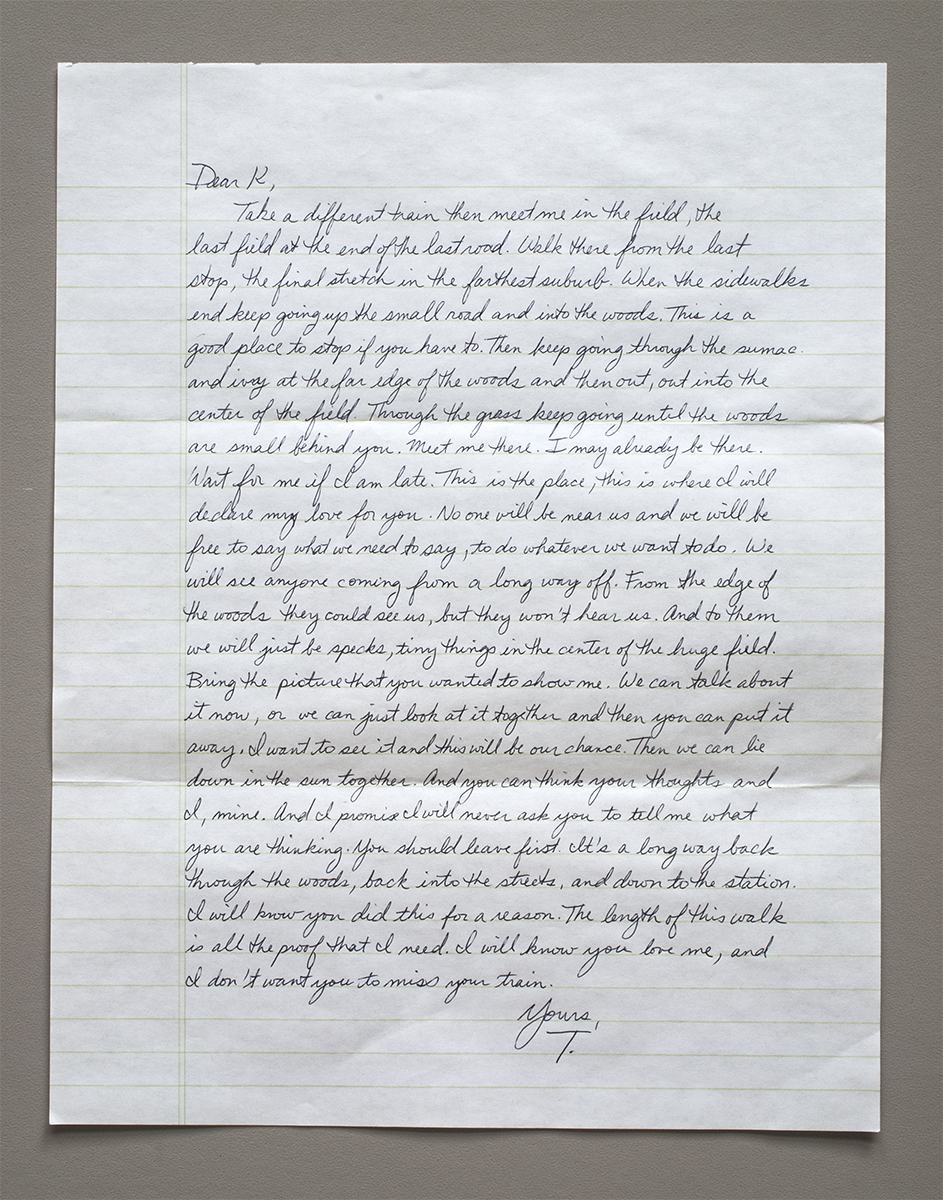 Dear K,
Take a different train then meet me in the field, the
last field at the end of the last road. Walk there from the last
stop, the final stretch in the farthest suburb. When the sidewalks
end keep going up the small road and into the woods. This is a
good place to stop if you have to. Then keep going through the sumac
and ivy at the far edge of the woods and then out, out into the
center of the field. Through the grass keep going until the woods
are small behind you. Meet me there. I may already be there.
Wait for me if I am late. This is the place, this is where I will
declare my love for you. No one will be near us and we will be
free to say what we need to say, to do whatever we want to do. We
will see anyone coming from a long way off. From the edge of
the woods they could see us, but they won't hear us. And to them
we will just be specks, tiny things in the center of the huge field.
Bring the picture that you wanted to show me. We can talk about
it now, or we can just look at it together and then you can put it
away. I want to see it and this will be our chance. Then we can lie
down in the sun together. And you can think your thoughts and
I, mine. And I promise I will never ask you to tell me what
you are thinking. You should leave first. It's a long way back
through the woods, back into the streets, and down to the station.
I will know you did this for a reason. The length of this walk
is all the proof that I need. I will know you love me, and
I don't want you to miss your train.
Yours,
T.